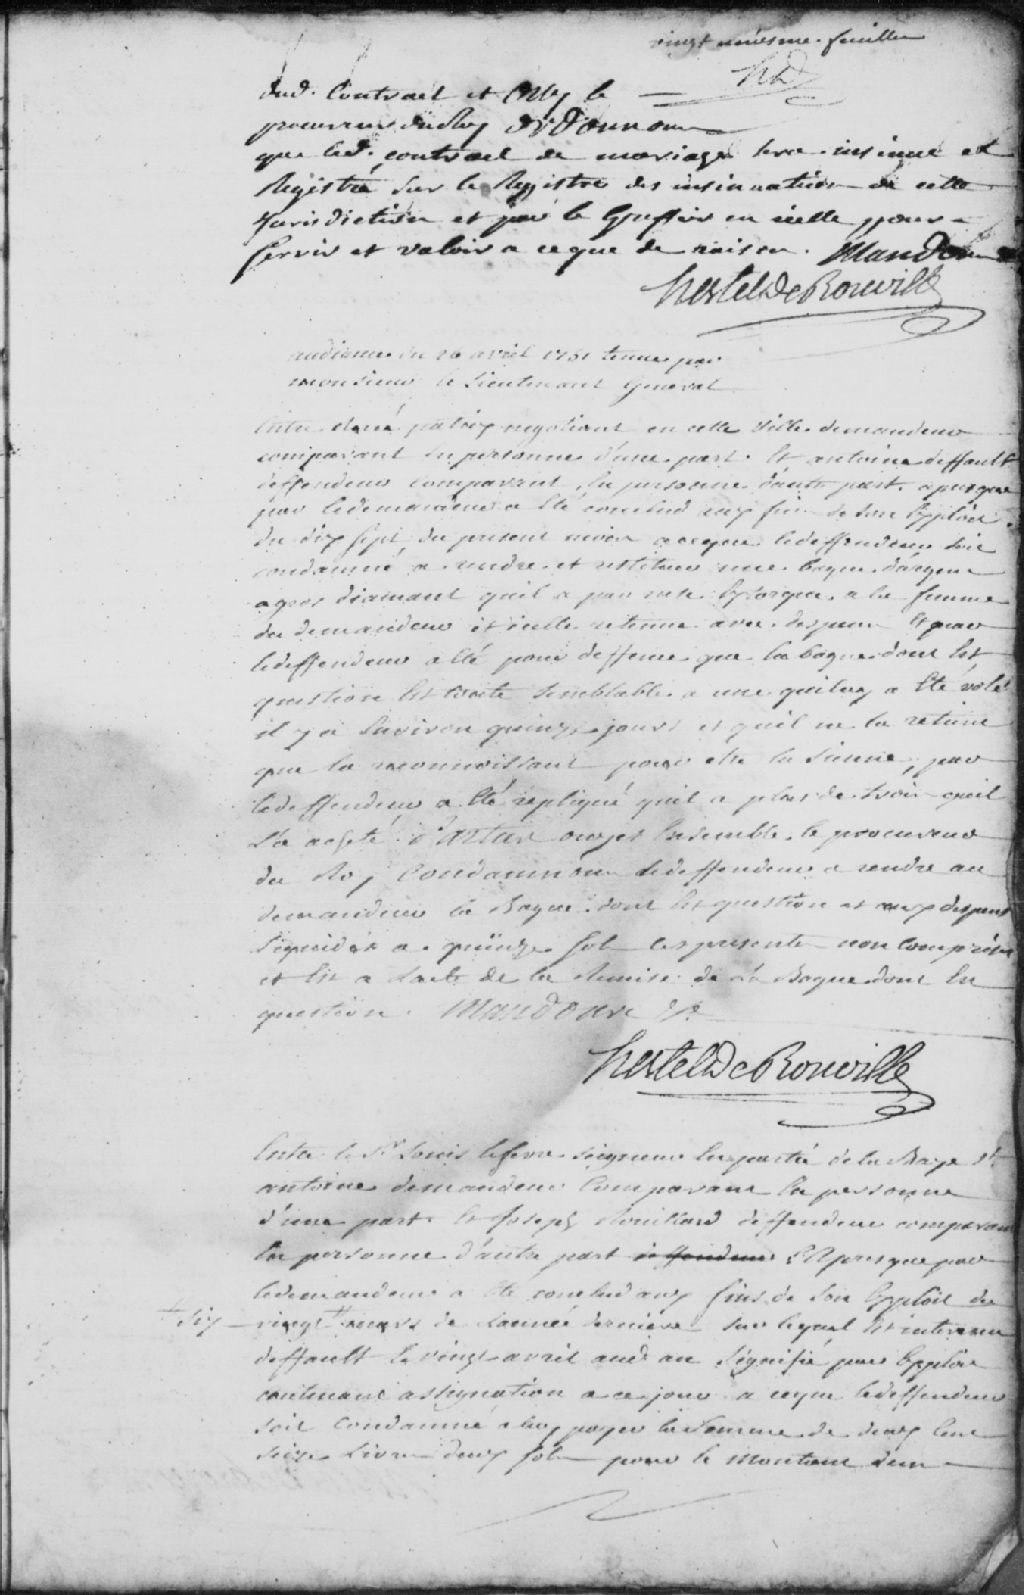 vingt uniesme feuillet
dud. Contract et Ouy le
procureur du Roy Ordonnons
que led. contract de mariage sera insinué et
Registré sur le Registre des insinuations de cette
Jurisdiction et par le Greffier en icelle pour
servir et valoir a ce que de raison. Mandons
hertel De Rouville
audience du 16 avril tenue par
monsieur le Lieutenant General
Entre negotiant en cette ville demandeur
comparant En personne d'une part Et antoine deffault
deffendeur comparant En personne d'autre part apres que
par le demandeur a Eté conclud aux fins de son Exploit
du dix sept du present mois a ce que le deffendeur soit
condamné a rendre et restituer une bague d'argent
a gros diamant quil a par ruse Extorquée a la femme
du demandeur et icelle retenue avec despens Et par
le deffendeur a Eté pour deffense que la bague dont Est
question Est toute semblable a une quiluy a Eté volé
il y a Environ quinze jours et quil ne la retient
que la reconnoissant pour etre la sienne, par
le deffendeur a Eté repliqué quil a plus de trois quil
l'a acheté d' ouyes Ensemble le procureur
du Roy Condamnons le deffendeur a rendre au
demandeur la Bague dont Est question et aux despens
liquidés a quinze sols ces presentes non Comprises
et Est a de la Remise de la Bague dont En
question. Mandons &a
hertel De Rouville
Entre le Sr Louis lefevre seigneur En partie de la Baye St
antoine demandeur Comparant En personne
d'une part Et Joseph deffendeur comparant
En personne d'autre part deffendeur Et Apres que par
le demandeur a Eté conclud aux fins de son Exploit du
+ six vingt + mars de l'année derniere sur lequel Est intervenu
deffault le vingt avril aud. an signifié par Exploit
contenant assignation a ce jour a ce que le deffendeur
soit Condamné a luy payer la Somme de deux Cent
seize Livres deux sols pour le montant d'un